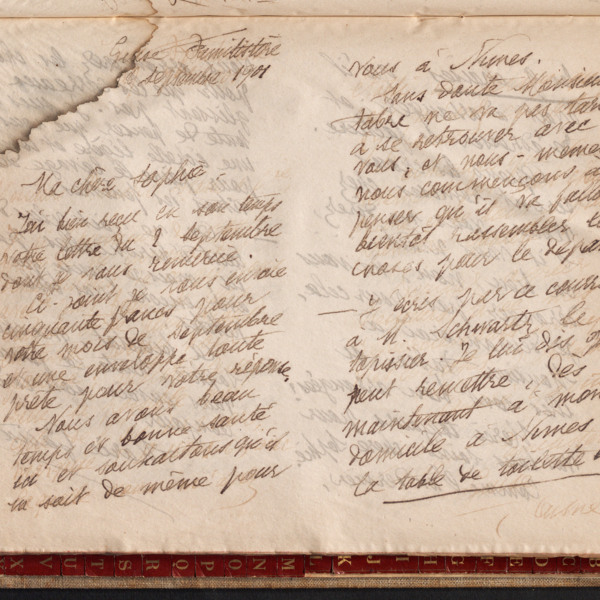 Septembre 1901
Ma chère Sophie
J'ai bien reçu en son temps
votre lettre du 2 Septembre
dont je vous remercie.
Ci-joint je vous envoie
cinquante francs pour
votre mois de Septembre
et une enveloppe toute
prête pour votre réponse.
Nous avons beau
temps et bonne santé
ici et souhaitons qu'il
en soit de même pour
vous à Nimes.
Sans doute Monsieur
Fabre ne va pas tard
à se retrouver avec
vous, et nous-mêmes
nous commençons à
penser qu'il va fallo
bientôt rassembler le
choses pour le dépa
J'écris par ce courr
à M. Schwartz le
tapissier. Je lui dis q
peut remettre, dès
maintenant à mon
domicile à Nimes
la table de toilette
M N O P Q R S T U V X